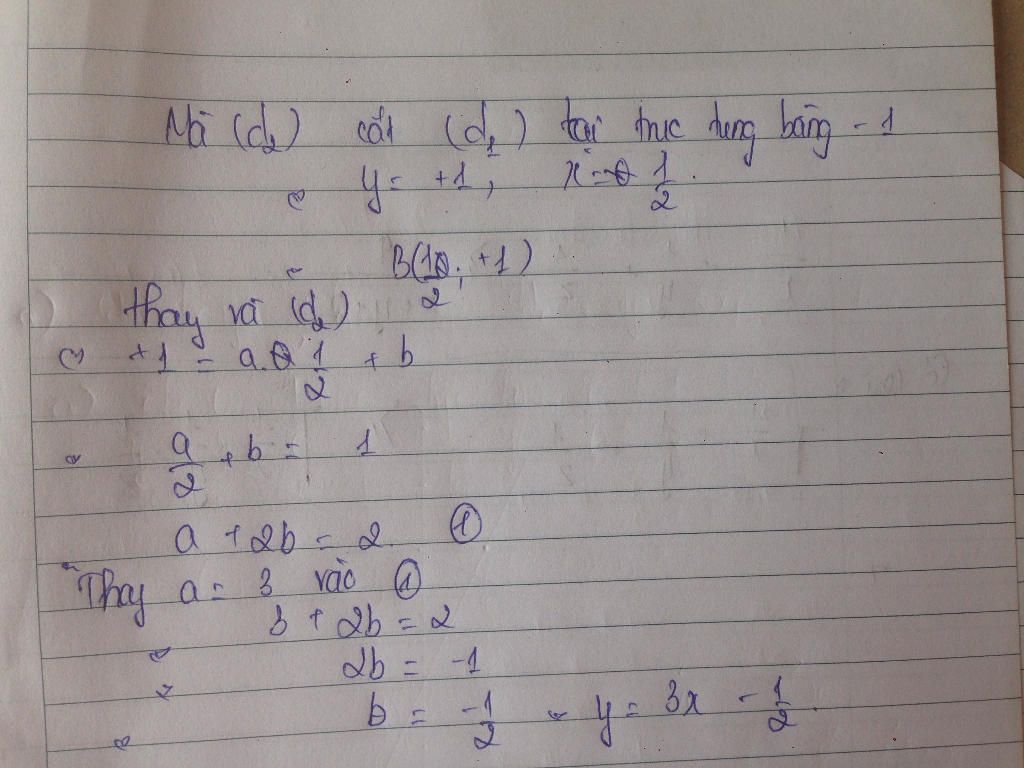 Mà (d₂) cắt (d₁) tại trục tung bằng -1
y = +1, x = 1/2.
B(1/2; +1)
thay và (d₂)
+1 = a. 1/2 + b
a/2 + b = 1
a + 2b = 2 ①
Thay a = 3 vào ①
3 + 2b = 2
2b = -1
b = -1/2 y = 3x - 1/2.